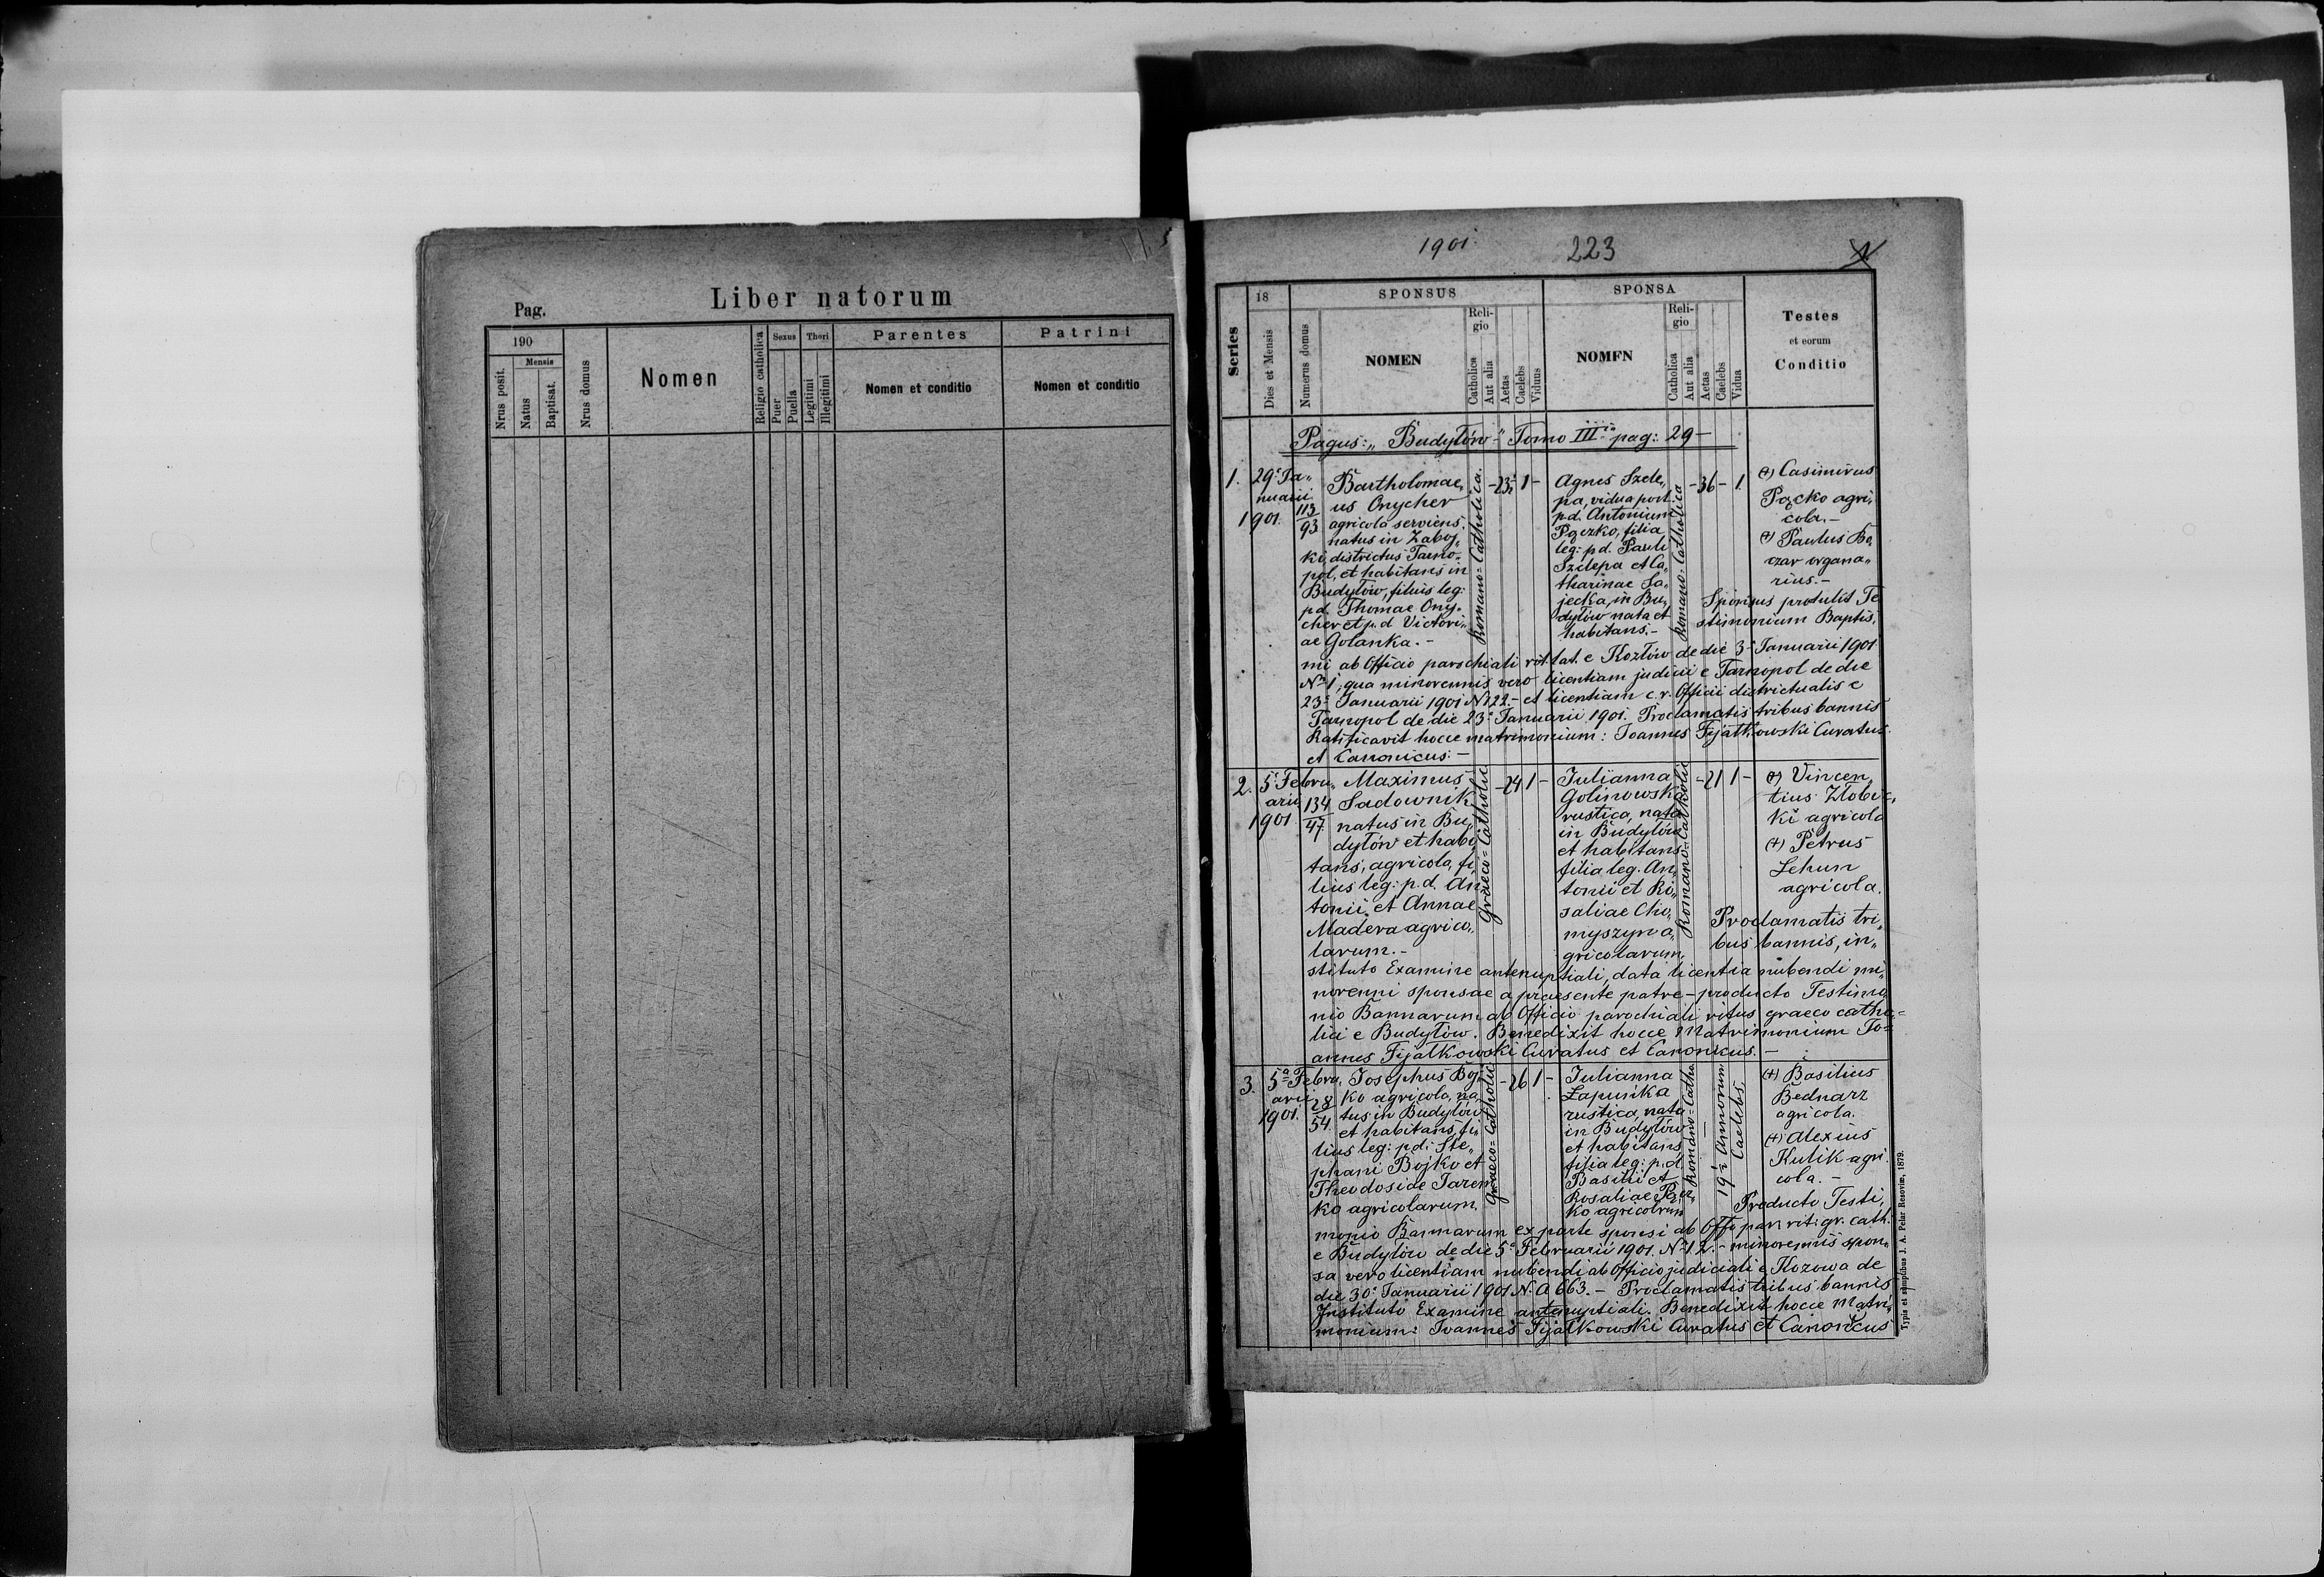 Pag.
Liber natorum
190
Nrus posit.
Mensis
Natus
Baptisat.
Nrus domus
Nomen
Religio catholica
Sexus
Puer
Puella
Thori
Legitimi
Illegitimi
Parentes
Nomen et conditio
Patrini
Nomen et conditio
1901.
223
Series
18
Dies et Mensis
Numerus domus
SPONSUS
NOMEN
Reli-
gio
Catholica
Aut alia
Aetas
Caelebs
Viduus
SPONSA
NOMEN
Reli-
gio
Catholica
Aut alia
Aetas
Caelebs
Vidua
Testes
et eorum
Conditio
Pagus: „Budyłów" Tomo III pag: 29 —
1.
29. Ja„
nuarii
1901.
113
93
Bartholomae„
us Onycher
agricola serviens.
natus in Zaboj„
ki, districtus Tarno„
pol, et habitans in
Budyłów, filius leg:
p.d. Thomae Ony„
cher et p.d Victori„
ae Golanka. -
Romano=Catholica.
-23½ 1-
Agnes Szele„
pa, vidua post
p.d. Antonium
Pączko, filia
leg: p.d. Pauli
Szelepa et Ca„
tharinae Sa„
jecka, in Bu„
dyłów nata et
habitans. -
Romano=Catholica
-36- 1.
(+) Casimirus
Pącko agri„
cola. -
(+) Paulus Bo„
czar organa„
rius. -
Sponsus protulit Te
stimonium Baptis„
mi ab Officio parochiali rit. lat. e Kozłów de die 3. Januarii 1901
No 1, qua minorennis vero licentiam judicii e Tarnopol de die
23. Januarii 1901 N 122. - et licentiam c.r. Officii districtualis e
Tarnopol de die 23. Januarii 1901. Proclamatis tribus bannis
Ratificavit hocce matrimonium: Joannes Fijałkowski Curatus
et Canonicus. -
2.
5. Febru„
arii
1901
134
47
Maximus
Sadownik
natus in Bu„
dyłów et habi
tans, agricola, fi„
lius leg: p.d. An
tonii et Annae
Madera agrico„
larum. -
Graeco=Catholic
-24 1-
Julianna
Golinowska
rustica, nata
in Budyłów
et habitans
filia leg. An„
tonii et Ro„
saliae Cho„
myszyn a„
gricolarum
Romano=Catholic
-21 1-
(+) Vincen„
tius Złobic„
ki agricola
(+) Petrus
Lehun
agricola.
Proclamatis tri„
bus bannis, in„
stituto Examine antenuptiali, data licentia nubendi mi„
norenni sponsae a praesente patre - producto Testimo
nio Bannarum ab Officio parochiali ritus graeco catho=
lici e Budyłów. Benedixit hocce Matrimonium Jo=
annes Fijałkowski Curatus et Canonicus. -
3.
5a Febru„
arii
1901.
28
54
Josephus Boj„
ko agricola, na„
tus in Budyłów
et habitans, fi„
lius leg: p.d: Ste„
phani Bojko et
Theodosiae Jarem
ko agricolarum.
Graeco=Catholic
-26 1-
Julianna
Łapuńka
rustica, nata
in Budyłów
et habitans
filia leg: p.d.
Basilii et
Rosaliae Pącz„
ko agricolrum
Romano=Catho
19½ Annorum
Caelebs.
(+) Basilius
Bednarz
agricola.
(+) Alexius
Kulik agri„
cola. -
Producto Testi„
monio Bannarum ex parte sponsi ab Offo par: rit: gr. cath.
e Budyłów de die 5. Februarii 1901. No 12. - minorennis spon„
sa vero licentiam nubendi ab Officio judiciali e Kozowa de
die 30. Januarii 1901 N. A 663. - Proclamatis tribus bannis
Instituto Examine antenuptiali. Benedixit hocce Matri„
monium: Joannes Fijałkowski Curatus et Canonicus
Typis et sumptibus J. A. Pelar Resoviæ, 1879.